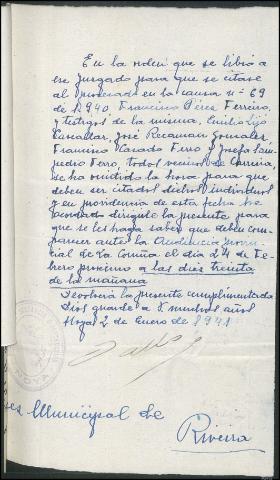 En la orden que se libró a
ese Juzgado para que se citase
al procesado en la causa nº 69
de 1.940, Francisco Pérez Ferreiro,
y testigos de la misma, Emilio Lijó
José Recaman Gonzalez,
Francisco Casado Fero y Josefa
Fero, todos vecinos de
se ha omitido la hora para que
deben ser citados dichos individuos
y en providencia de esta fecha he
acordado dirigirle la presente para
que se les haga saber que deben com-
parecer ante la Audiencia provin-
cial de La Coruña el dia 24 de Fe-
brero proximo a las diez treinta
de la mañana
Devolverá la presente cumplimentada
Dios guarde a V. muchos años
Noya, 2 de Enero de 1941
Municipal de
Riveira